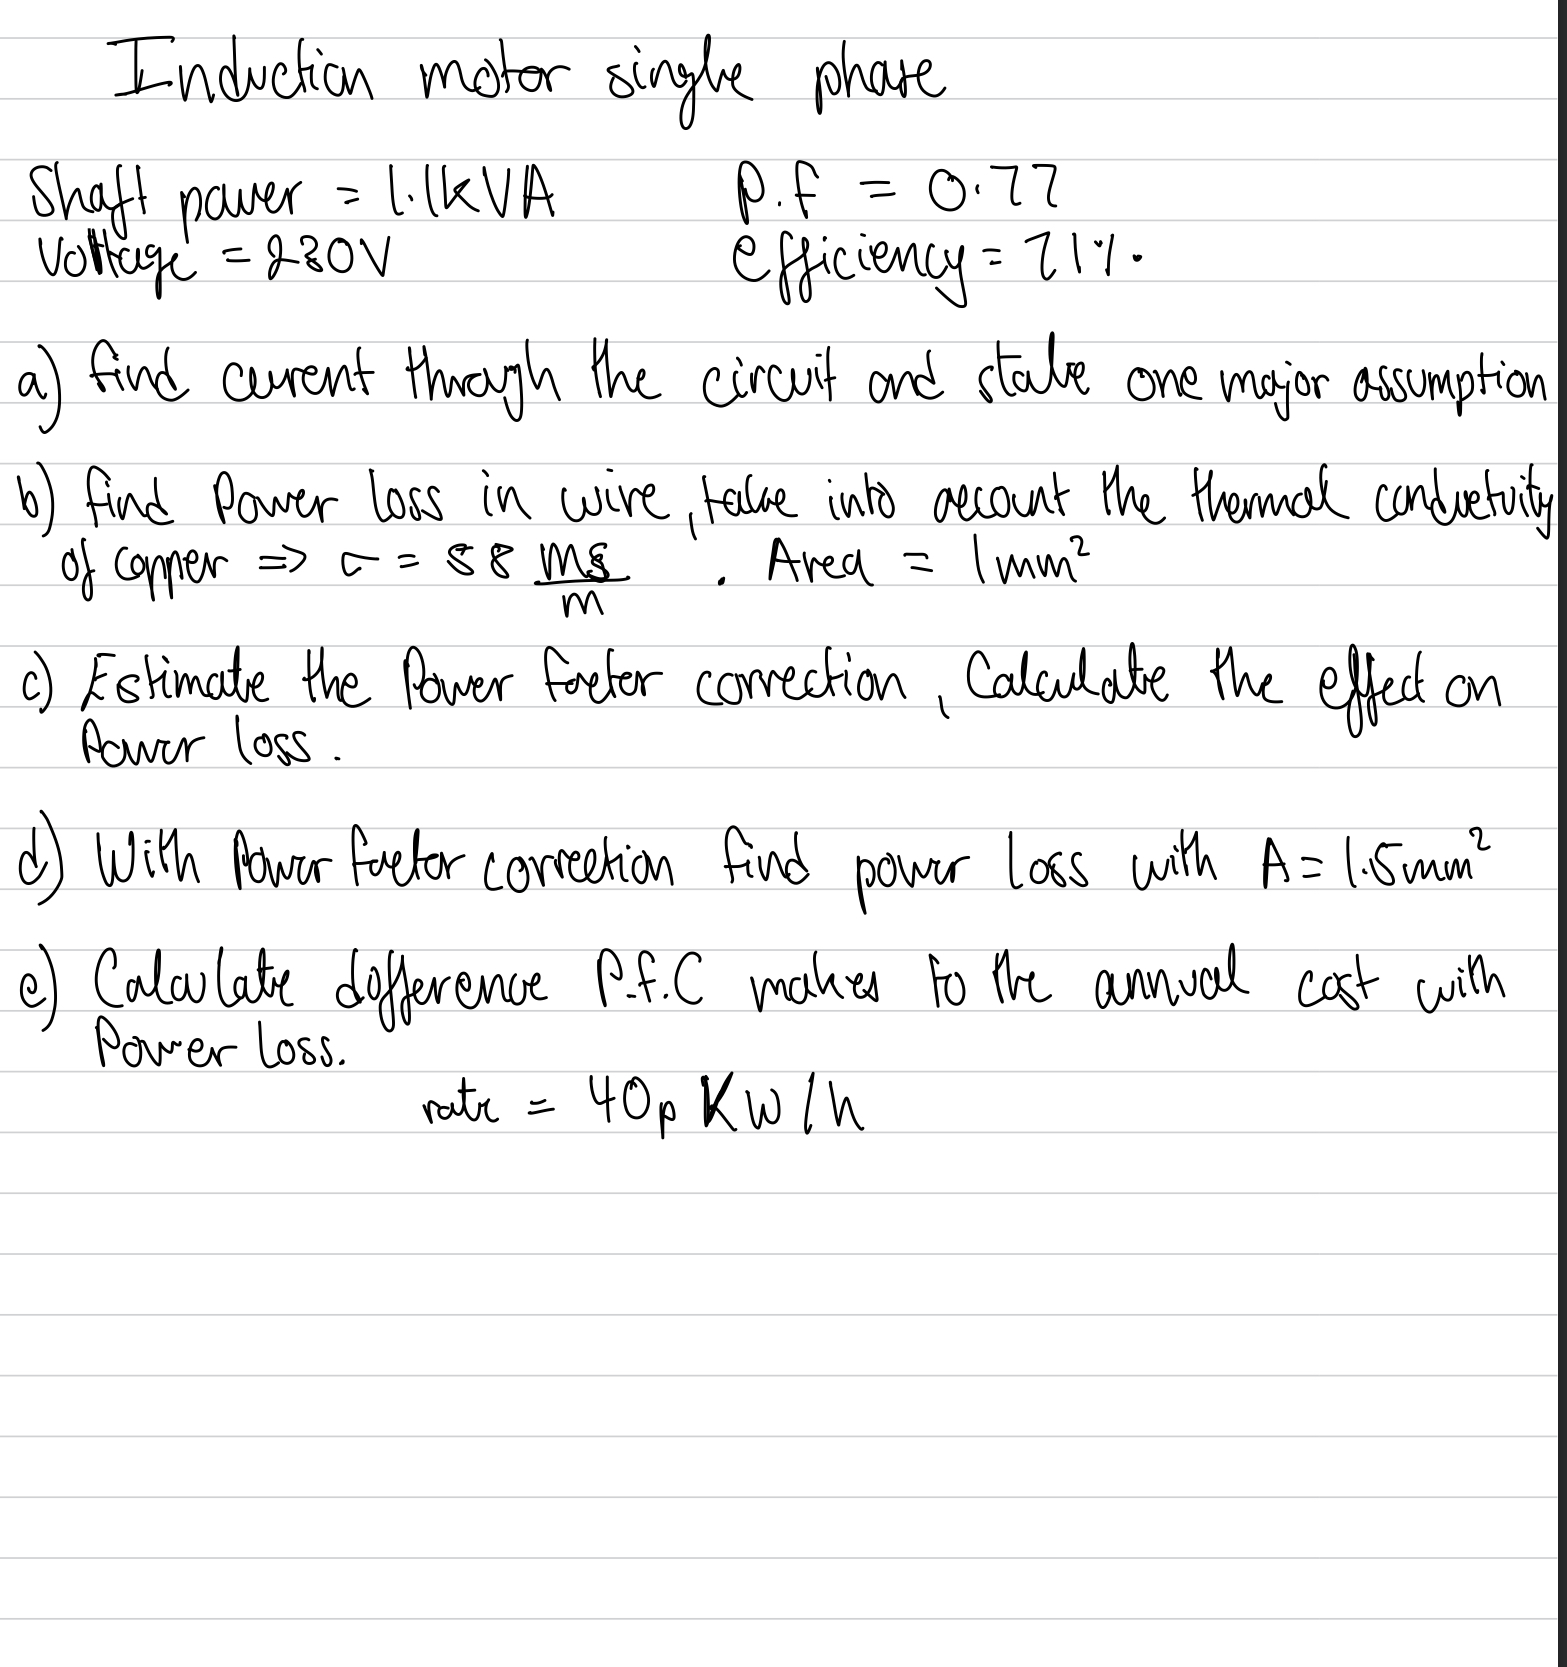 Induction motor single phase
Shaft power = 1.1kVA P.f = 0.77
Voltage = 230V efficiency = 71%.
a) find current through the circuit and state one major assumption
b) find Power loss in wire, take into account the thermal conductivity
of copper => σ = 58 MS/m . Area = 1mm²
c) Estimate the Power factor correction, Calculate the effect on
Power loss.
d) With Power factor correction find power loss with A = 1.5mm²
e) Calculate difference P.f.C makes to the annual cost with
Power Loss.
rate = 40p KW/h